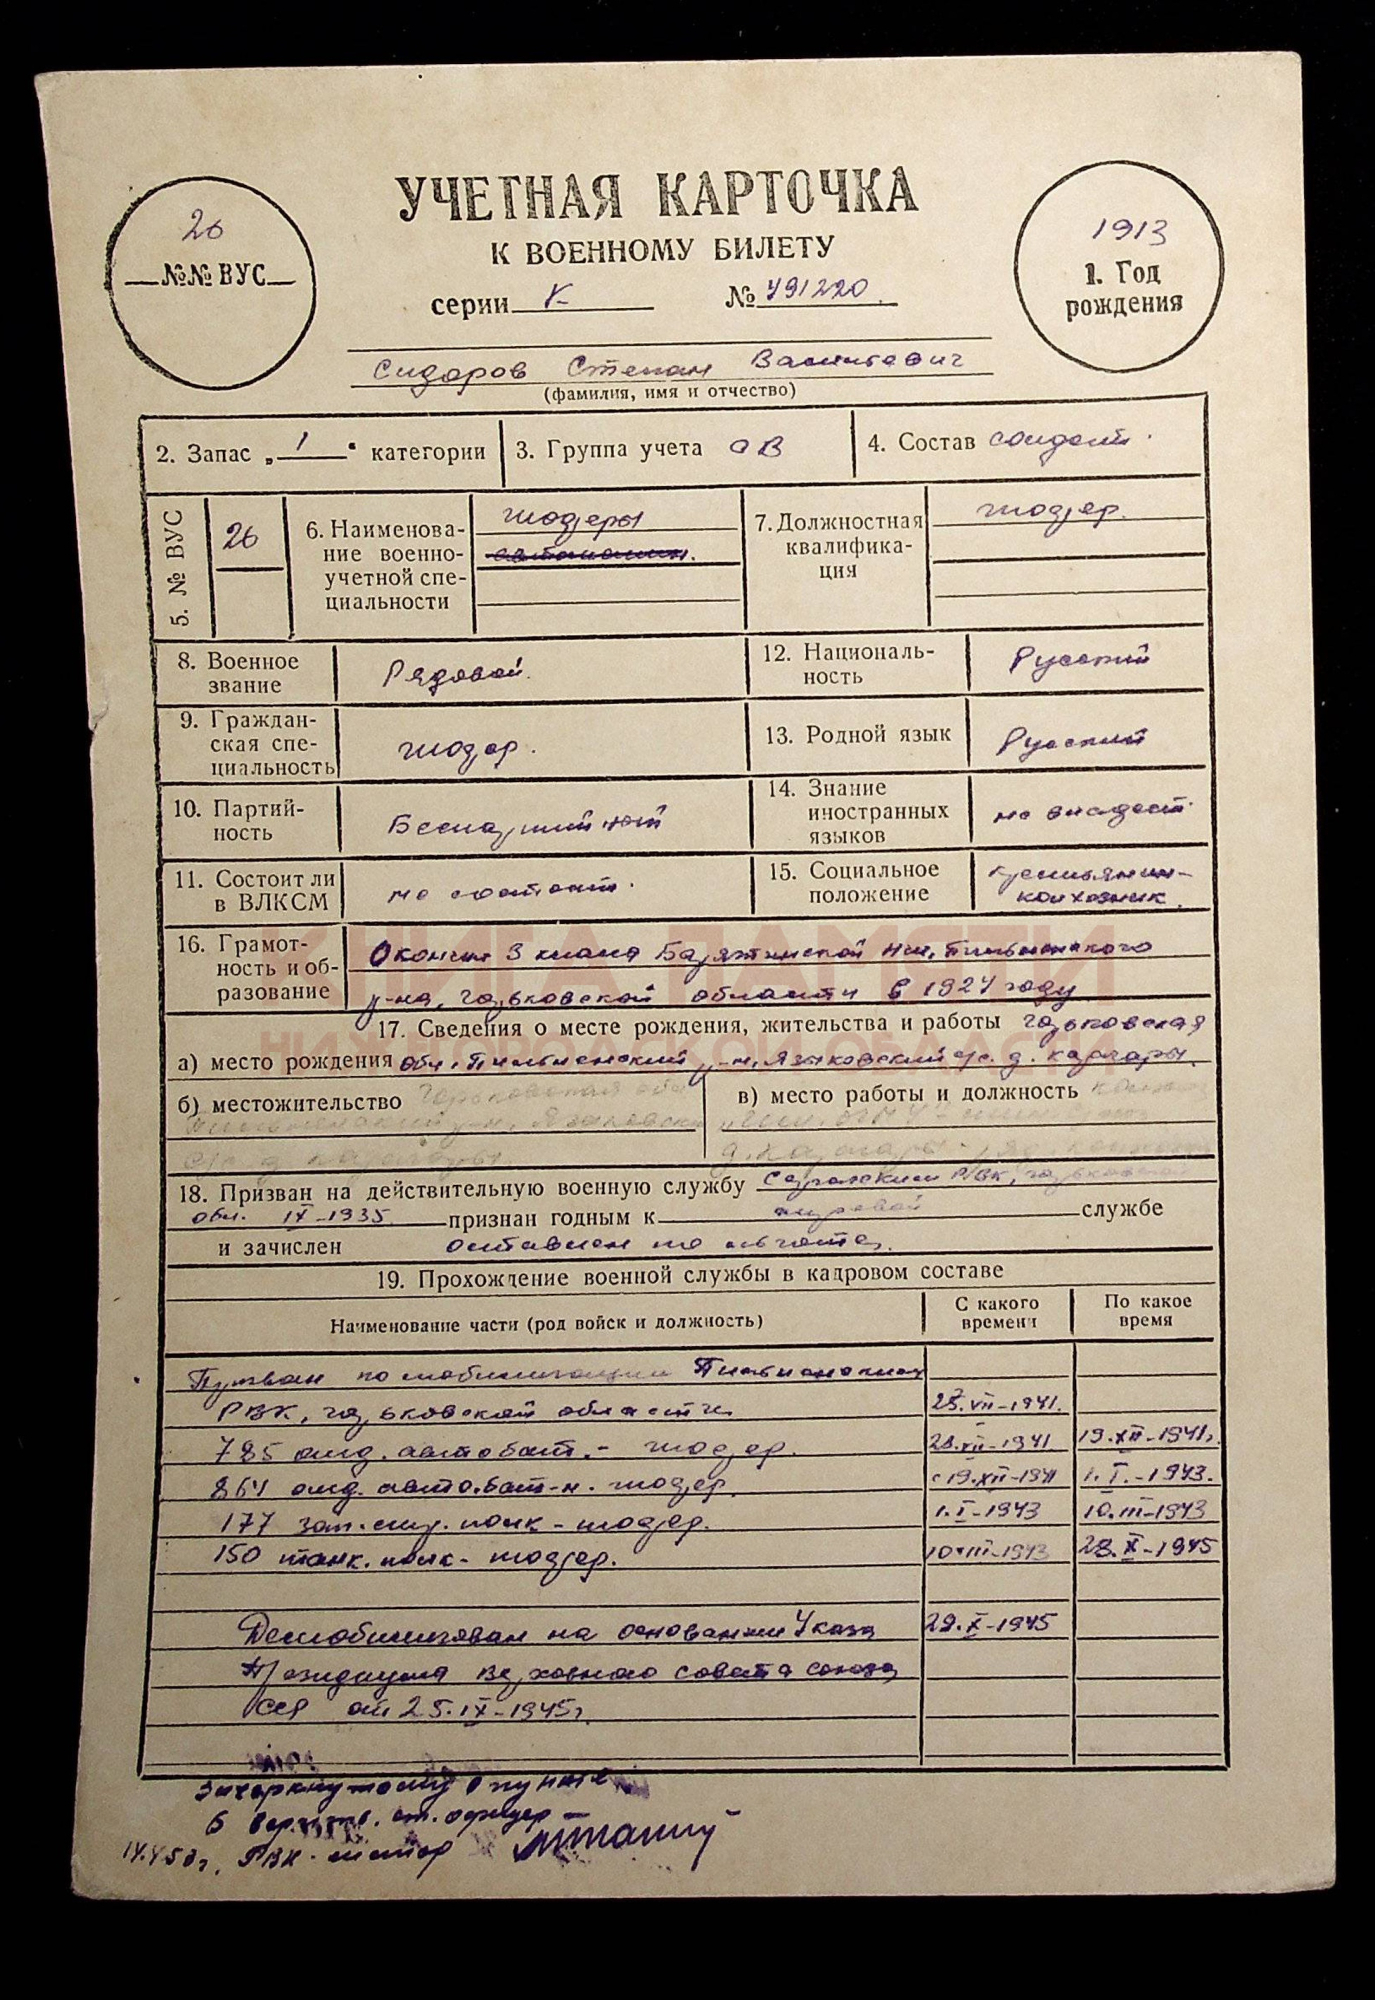 УЧЕТНАЯ КАРТОЧКА
К ВОЕННОМУ БИЛЕТУ
серии №
26
№№ ВУС
1913
1. Год
рождения
Сидоров Степан Васильевич
(фамилия, имя и отчество)
2. Запас „1“ категории
3. Группа учета СВ
4. Состав солдат.
5. № ВУС
26
6. Наименова-
ние военно-
учетной спе-
циальности
шоферы
7. Должностная
квалифика-
ция
шофер.
8. Военное
звание
Рядовой.
12. Националь-
ность
Русский
9. Граждан-
ская спе-
циальность
шофер.
13. Родной язык
Русский
10. Партий-
ность
Беспартийный
14. Знание
иностранных
языков
не владеет.
11. Состоит ли
в ВЛКСМ
не состоит.
15. Социальное
положение
крестьянин-
колхозник.
КНИГА ПАМЯТИ
НИЖЕГОРОДСКОЙ ОБЛАСТИ
16. Грамот-
ность и об-
разование
Окончил 3 класса Пильненского
р-на, Горьковской области в 1927 году
17. Сведения о месте рождения, жительства и работы Горьковская
а) место рождения обл. Пильненский р-н, Языковский с/с. д.
б) местожительство Горьковская обл
Пильненский р-н, Языковский
с/с д.
в) место работы и должность
18. Призван на действительную военную службу РВК, Горьковской
обл. IX-1935 признан годным к службе
и зачислен оставлен по льготе.
19. Прохождение военной службы в кадровом составе
Наименование части (род войск и должность)
С какого
времени
По какое
время
Призван по мобилизации Пильненским
РВК, Горьковской области -VII-1941.
785 отд. автобат. - шофер. -VII-1941 19.XII-1941г.
864 отд. автобат-н. шофер. с 19.XII-1941 1.I.-1943.
177 зап. стр. полк - шофер. 1.I-1943 10.III-1943
150 танк. полк - шофер. 10.III-1943 28.X-1945
Демобилизован на основании Указа 29.X-1945
Президиума Верховного совета союза
ССР от 25.IX-1945г.
Зачеркнутому в пункте
6 верить. ст. офицер
РВК - майор